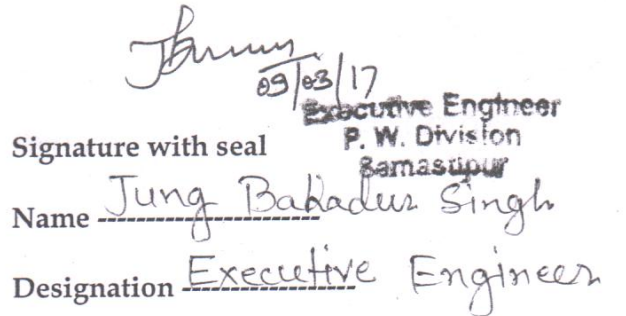 09/03/17
Executive Engineer
P. W. Division
Samastipur
Signature with seal
Name Jung Bahadur Singh
Designation Executive Engineer